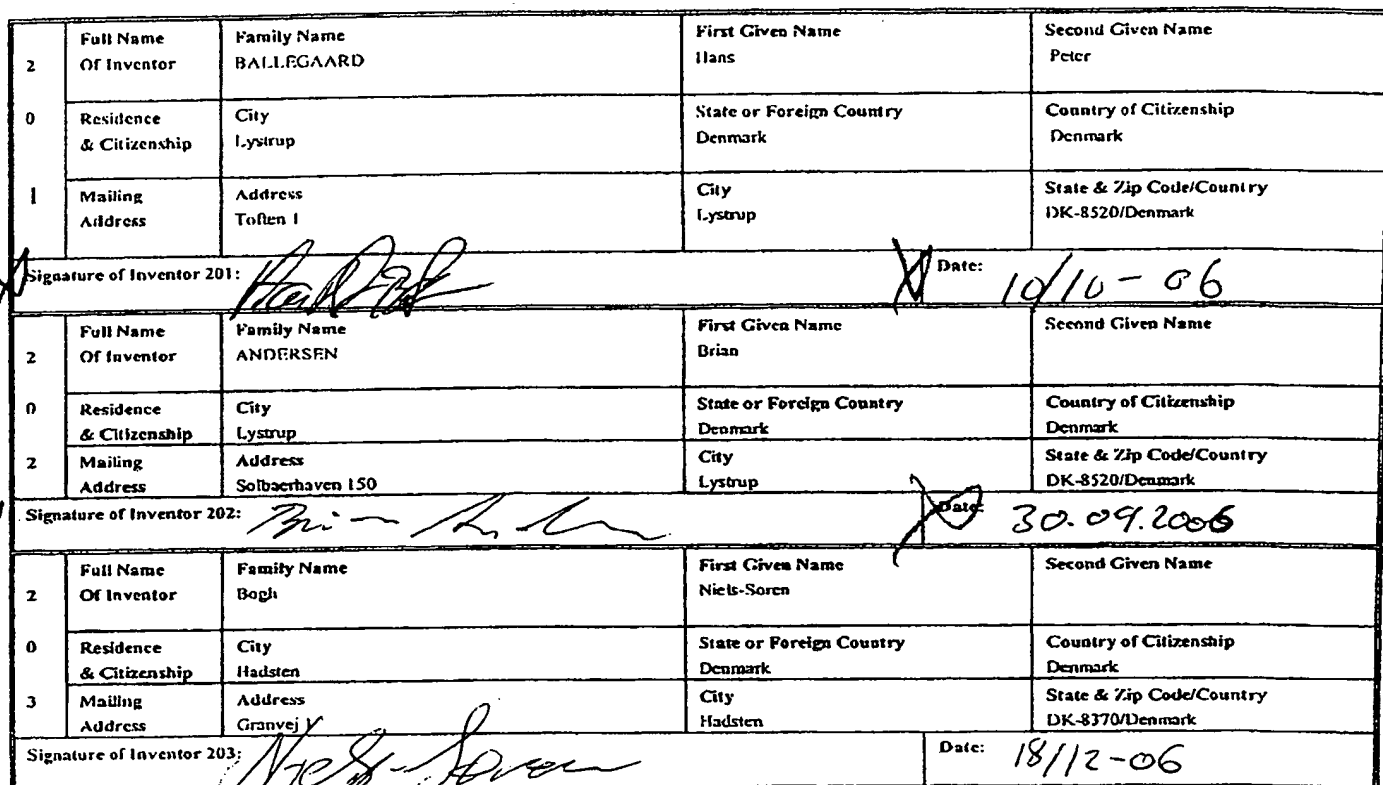 2 0 1
Full Name Of Inventor
Family Name BALLEGAARD
First Given Name Hans
Second Given Name Peter
Residence & Citizenship
City Lystrup
State or Foreign Country Denmark
Country of Citizenship Denmark
Mailing Address
Address Toften 1
City Lystrup
State & Zip Code/Country DK-8520/Denmark
Signature of Inventor 201:
Date: 10/10-06
2 0 2
Full Name Of Inventor
Family Name ANDERSEN
First Given Name Brian
Second Given Name
Residence & Citizenship
City Lystrup
State or Foreign Country Denmark
Country of Citizenship Denmark
Mailing Address
Address Solbaerhaven 150
City Lystrup
State & Zip Code/Country DK-8520/Denmark
Signature of Inventor 202:
Date: 30.09.2006
2 0 3
Full Name Of Inventor
Family Name Bogh
First Given Name Niels-Soren
Second Given Name
Residence & Citizenship
City Hadsten
State or Foreign Country Denmark
Country of Citizenship Denmark
Mailing Address
Address Granvej
City Hadsten
State & Zip Code/Country DK-8370/Denmark
Signature of Inventor 203: Niels-Soren
Date: 18/12-06